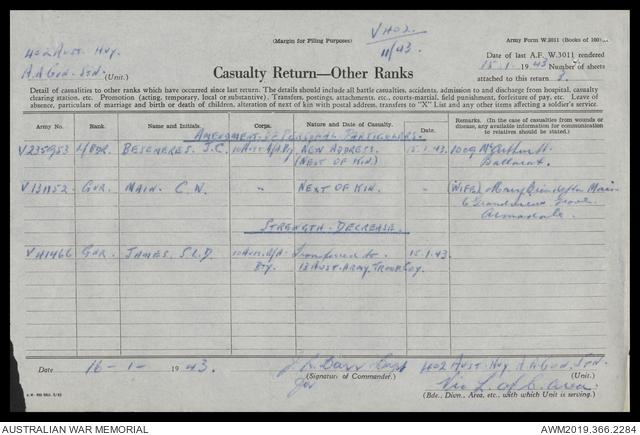 (Margin for Filing Purposes)
V H02.
11/43.
Army Form W.3011 (Books of 100)
402 Aust. Hvy.
A.A Gun. Stn. (Unit.)
Date of last A.F. W.3011 rendered
15. 1. 1943 Number of sheets
attached to this return
Casualty Return—Other Ranks
Detail of casualties to other ranks which have occurred since last return. The details should include all battle casualties, accidents, admission to and discharge from hospital, casualty
clearing station, etc. Promotion (acting, temporary, local or substantive). Transfers, postings, attachments, etc., courts-martial, field punishment, forfeiture of pay, etc. Leave of
absence, particulars of marriage and birth or death of children, alteration of next of kin with postal address, transfers to "X" List and any other items affecting a soldier's service.
Army No. Rank. Name and Initials. Unit. Nature and Date of Casualty. Date. Remarks. (In the case of casualties from wounds or
disease, any available information for communication
to relatives should be stated.)
Amendment of Personal Particulars.
V235953 L/Bdr. Besemeres. J.C. New Address. 15.1.43. 1009 McArthur St.
(Next of Kin) Ballarat.
V131152 Gnr. Main. C.W. " Next of Kin. " (Wife) Mary Main
6 Grandview Grove
Armadale.
Strength - Decrease.
V41466 Gnr. James. S.L.D. 10 Aust. A/A. Transferred to 15.1.43.
Bty. 13 Aust. Army Troop Coy.
Date 16 - 1 - 1943. Capt 402 Aust. Hvy A.A Gun. Stn.
(Signature of Commander.) (Unit.)
for Vic L. of C. Area.
(Bde., Divn., Area, etc., with which Unit is serving.)
AUSTRALIAN WAR MEMORIAL AWM2019.366.2284